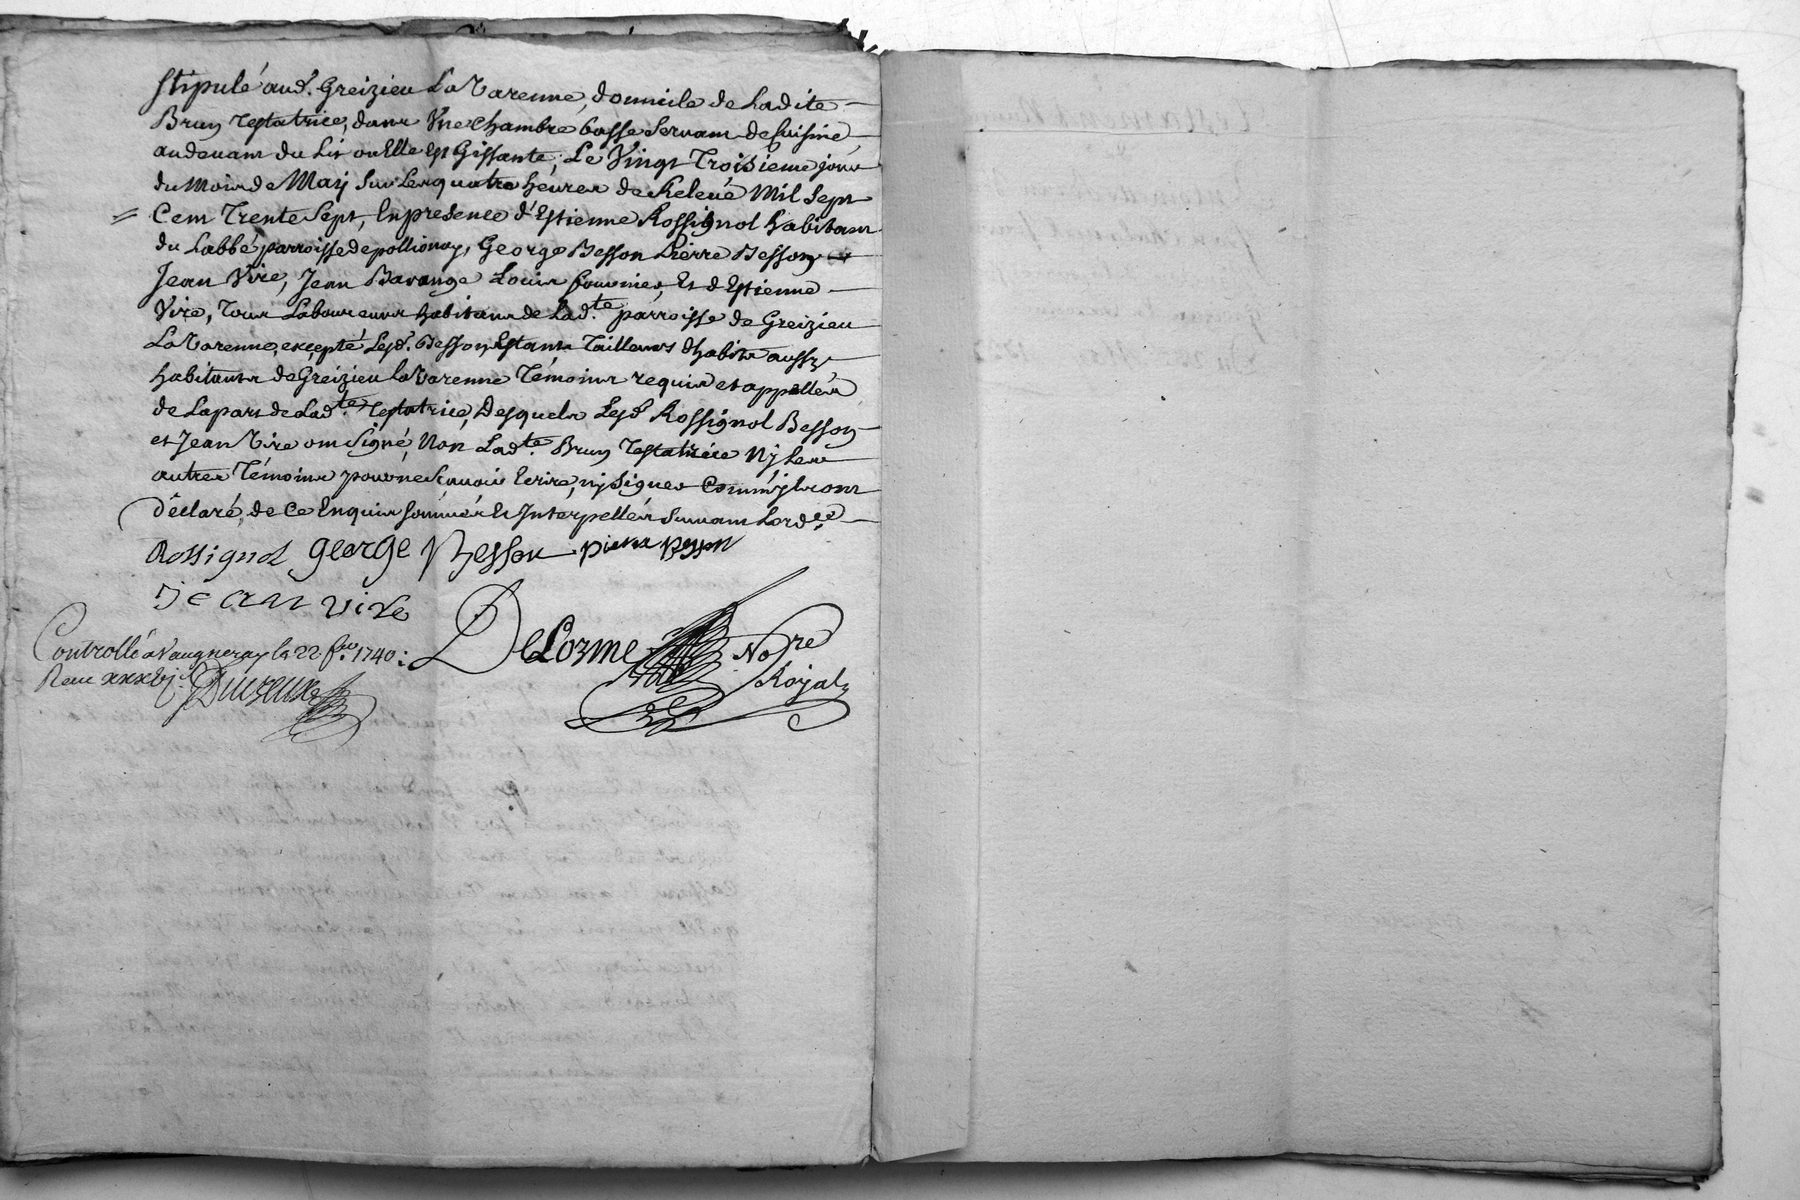 Stipulé aud.t Greizieu La Varenne, domicile de Ladite
Brun Testatrice, dans Une Chambre basse Servant de Cuisine,
audevant du Lit ou Elle Est Gissante, Le Vingt Troisieme jour
du Mois de May Sur Les quatre heures de Relevé Mil Sept
Cent Trente Sept, En presence d'Estienne Rossignol habitant
du Labbé parroisse de pollionay, George Besson Pierre Besson
Jean Vire, Jean Barange Louis fournier, Et d'Estienne
Vire, Tous Laboureurs habitans de Lad.te parroisse de Greizieu
La Varenne, excepté Lesd. Besson Estants Tailleurs d'habits aussy
habitants de Greizieu la Varenne Témoins requis et appellés
de Lapart de Lad.te Testatrice, Desquels Lesd. Rossignol Besson
et Jean Vire ont Signé, Non Lad.te Brun Testatrice Ny Les
autres Témoins pour ne Scavoir Ecrire, ny Signer Comm'ils ont
Déclaré, de Ce Enquis sommés Et Interpellés Suivant Lord.ce
Rossignol george Besson pierre Besson
Jean vire
DeLorme No.re
Royal
Controllé a Vaugneray le 22 f.er 1740:
Receu xxxvj s